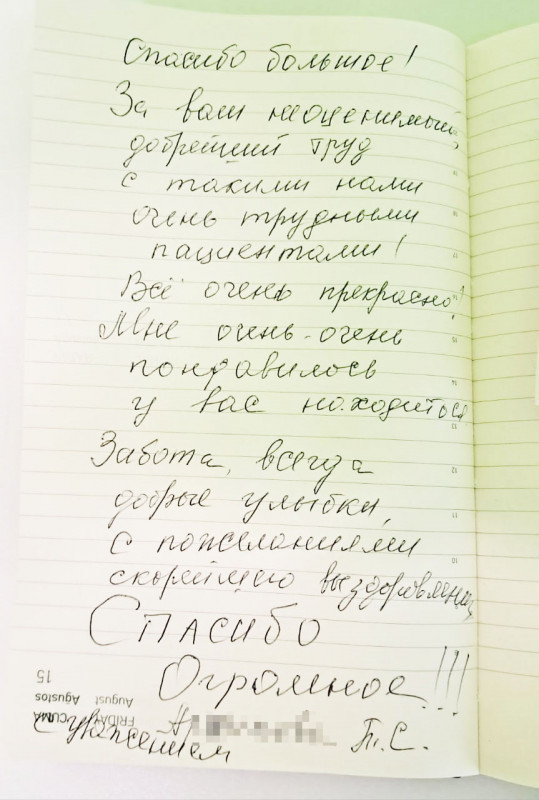 Спасибо большое!
За ваш неоценимый,
добрейший труд
с такими нами
очень трудными
пациентами!
Всё очень прекрасно!
Мне очень-очень
понравилось
у вас находиться
Забота, всегда
добрые улыбки,
с пожеланиями
скорейшего выздоровления
СПАСИБО
Огромное!!!
С уважением
П.С.
15
CUMA FRIDAY
Agustos August